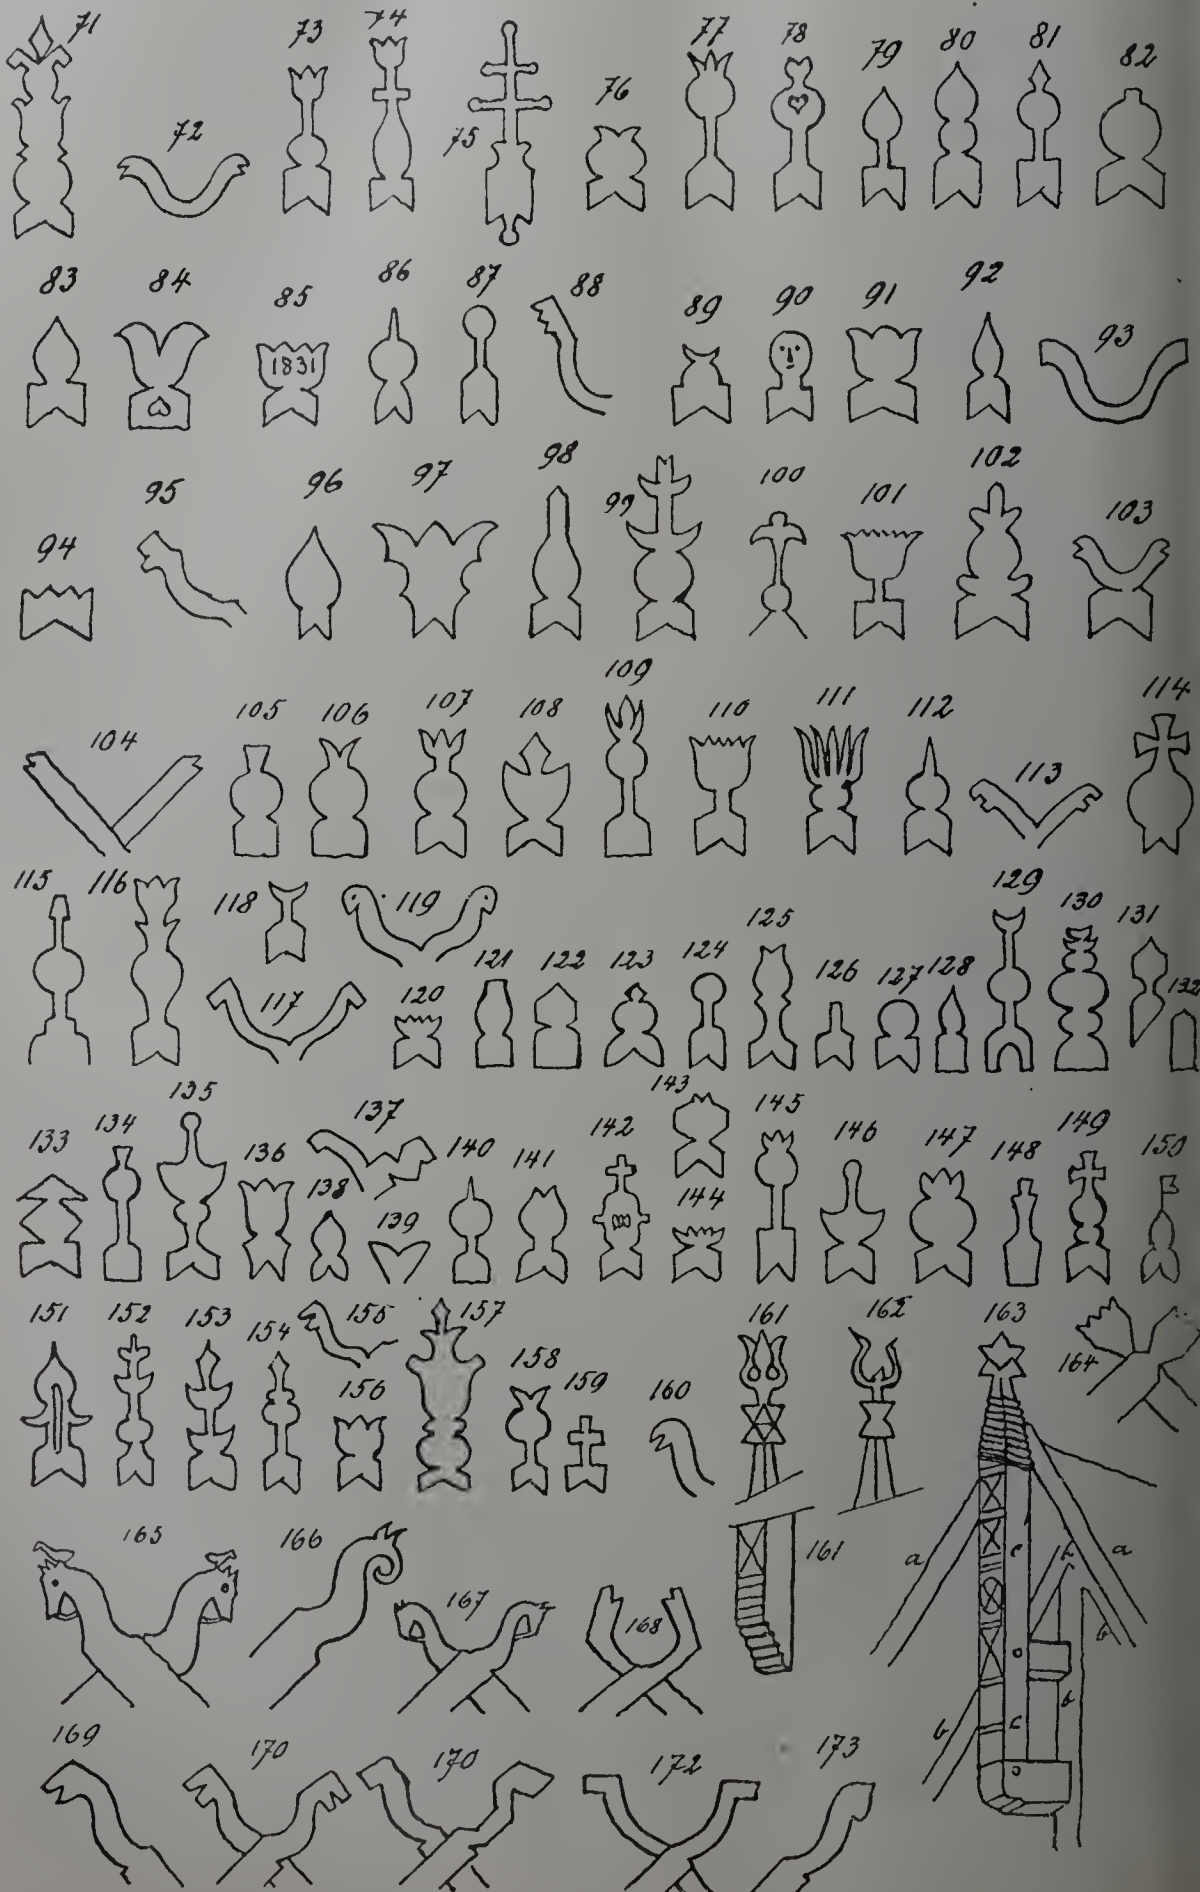 71 72 73 74 75 76 77 78 79 80 81 82
83 84 85 86 87 88 89 90 91 92 93
1831
94 95 96 97 98 99 100 101 102 103
104 105 106 107 108 109 110 111 112 113 114
115 116 117 118 119 120 121 122 123 124 125 126 127 128 129 130 131 132
133 134 135 136 137 138 139 140 141 142 143 144 145 146 147 148 149 150
151 152 153 154 155 156 157 158 159 160 161 162 163 164
165 166 167 168 161
a c h a
b
b b
c
169 170 170 172 173